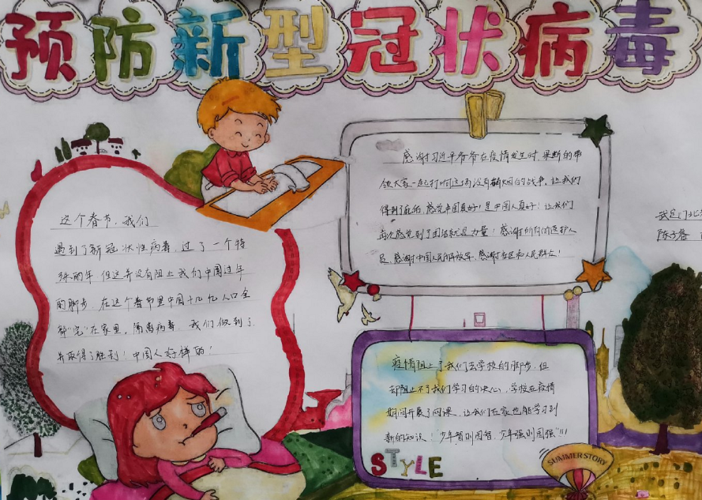 预防新型冠状病毒
这个春节，我们
遇到了新冠状性病毒，过了一个特
殊的年，但这并没有阻止我们中国过年
的脚步，在这个春节里中国十几亿人口全
部“宅”在家里，隔离病毒，我们做到了
并取得了胜利！中国人好样的！
感谢习近平爷爷在疫情发生时，果断的带
领大家一起打响这场没有硝烟的战争，让我们
得到了
感觉中国真好！是中国人真好！让我们
再次感觉到了团结就是力量！感谢
感谢中国人民解放军，感谢
疫情阻止了我们去学校的脚步，但
却阻止不了我们学习的决心，学校在疫情
期间开展了网课，让我们在家也能学习到
新的知识！少年智则国智，少年强则国强”！！
STYLE
SUMMERSTORY